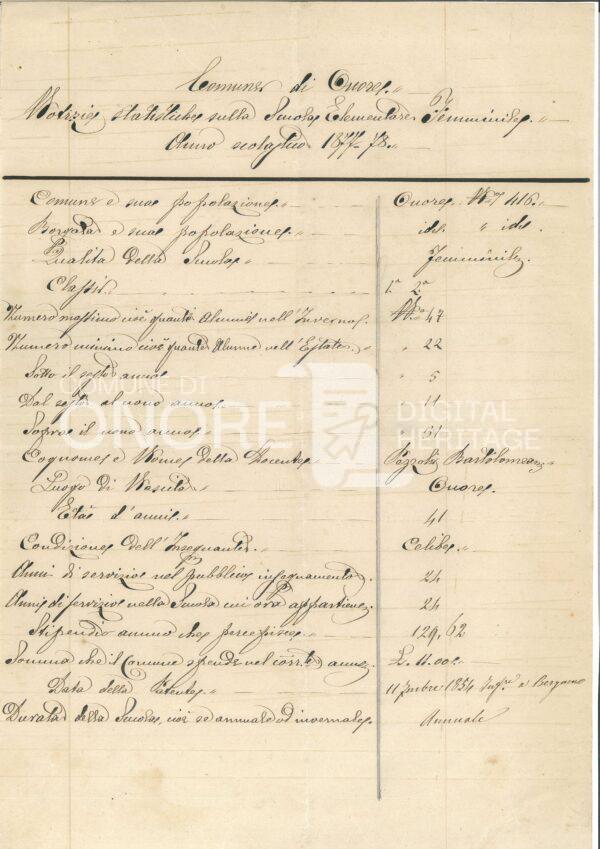 Comune di Onore.
Notizie statistiche sulla Scuola Elementare Femminile.
Anno scolastico 1877-78.
Comune e sua popolazione. Onore. N° 416.
Borgata e sua popolazione. id. " id.
Qualità della Scuola. Femminile.
Classi. 1.a 2.a
Numero massimo cioè quanti Alunni nell'Inverno. N° 47
Numero minimo cioè quante Alunne nell'Estate. " 22
Sotto il sesto anno " 5
Dal sesto al nono anno. 11
Sopra il nono anno 31
Cognome e Nome della Docente. Bartolomea
Luogo di Nascita. Onore.
Età d'anni. 41
Condizione dell'Insegnante. Celibe.
Anni di servizio nel pubblico insegnamento. 24
Anni di servizio nella Scuola cui ora appartiene. 24
Stipendio annuo che percepisce. 129,62
Somma che il Comune spende nel corrte anno. L. 11.00
Data della Patente. 11 7mbre 1854 Bergamo
Durata della Scuola, cioè se annuale od invernale. Annuale
COMUNE DI
ONORE
DIGITAL
HERITAGE